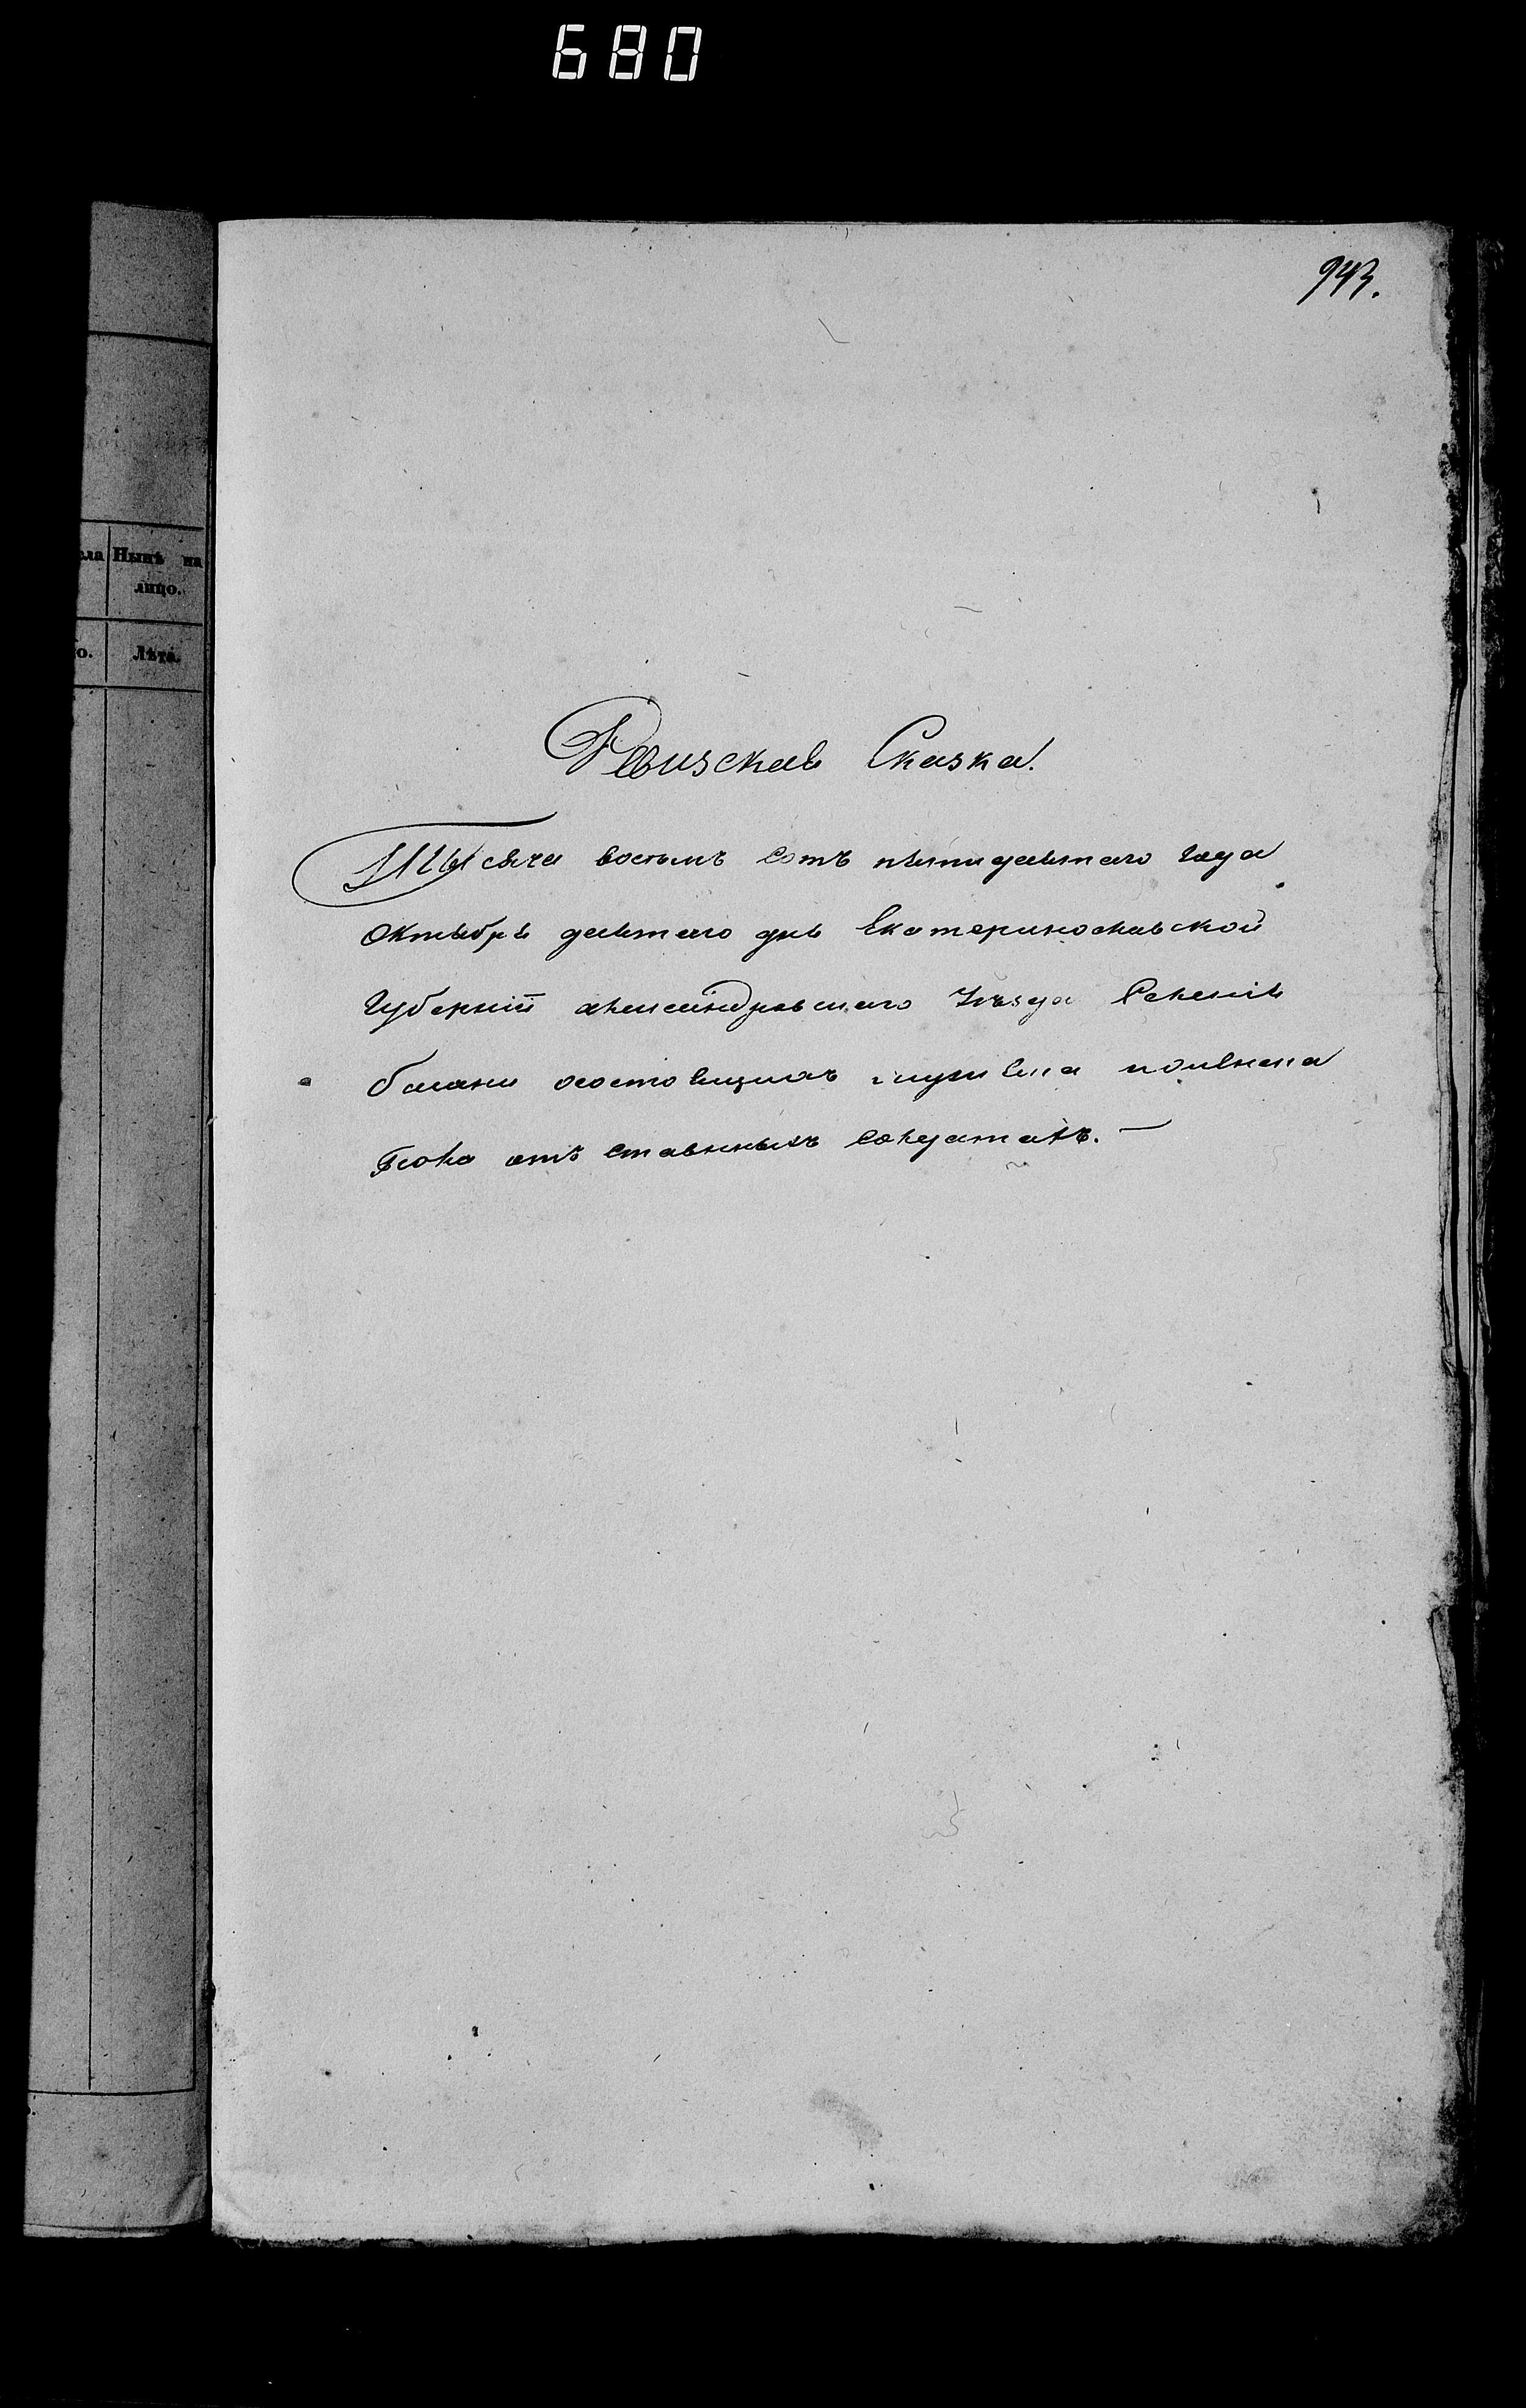 680
943.
ла Нынѣ на
лицо.
о. Лѣта.
Ревизская Сказка.
Тысяча восемъ сотъ пятидесятаго года
Октября десятаго дня Екатеринославской
Губерніи Александровскаго Уѣзда Селенія
отъ ставныхъ солдатахъ. —